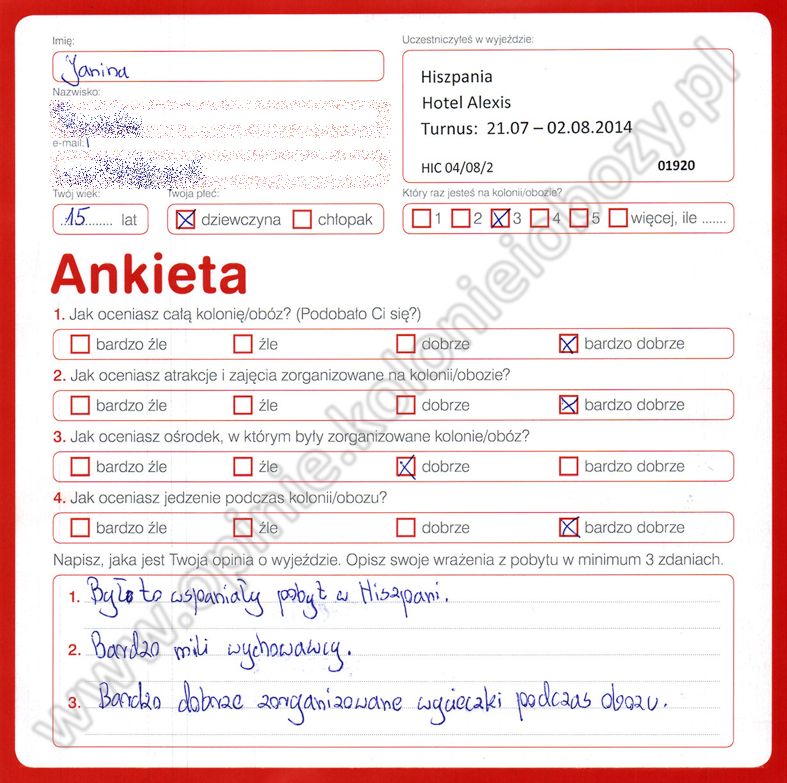 Imię:
Uczestniczyłeś w wyjeździe:
Janina
Hiszpania
Hotel Alexis
Turnus: 21.07 – 02.08.2014
HIC 04/08/2
01920
Nazwisko:
e-mail:
Twój wiek:
Twoja płeć:
Który raz jesteś na kolonii/obozie?
15........ lat
dziewczyna
chłopak
1 2 3 4 5 więcej, ile .......
Ankieta
1. Jak oceniasz całą kolonię/obóz? (Podobało Ci się?)
bardzo źle źle dobrze bardzo dobrze
2. Jak oceniasz atrakcje i zajęcia zorganizowane na kolonii/obozie?
bardzo źle źle dobrze bardzo dobrze
3. Jak oceniasz ośrodek, w którym były zorganizowane kolonie/obóz?
bardzo źle źle dobrze bardzo dobrze
4. Jak oceniasz jedzenie podczas kolonii/obozu?
bardzo źle źle dobrze bardzo dobrze
Napisz, jaka jest Twoja opinia o wyjeździe. Opisz swoje wrażenia z pobytu w minimum 3 zdaniach.
1. Było to wspaniały pobyt w Hiszpani.
2. Bardzo mili wychowawcy.
3. Bardzo dobrze zorganizowane wycieczki podczas obozu.
www.opinie.kolonieiobozy.pl